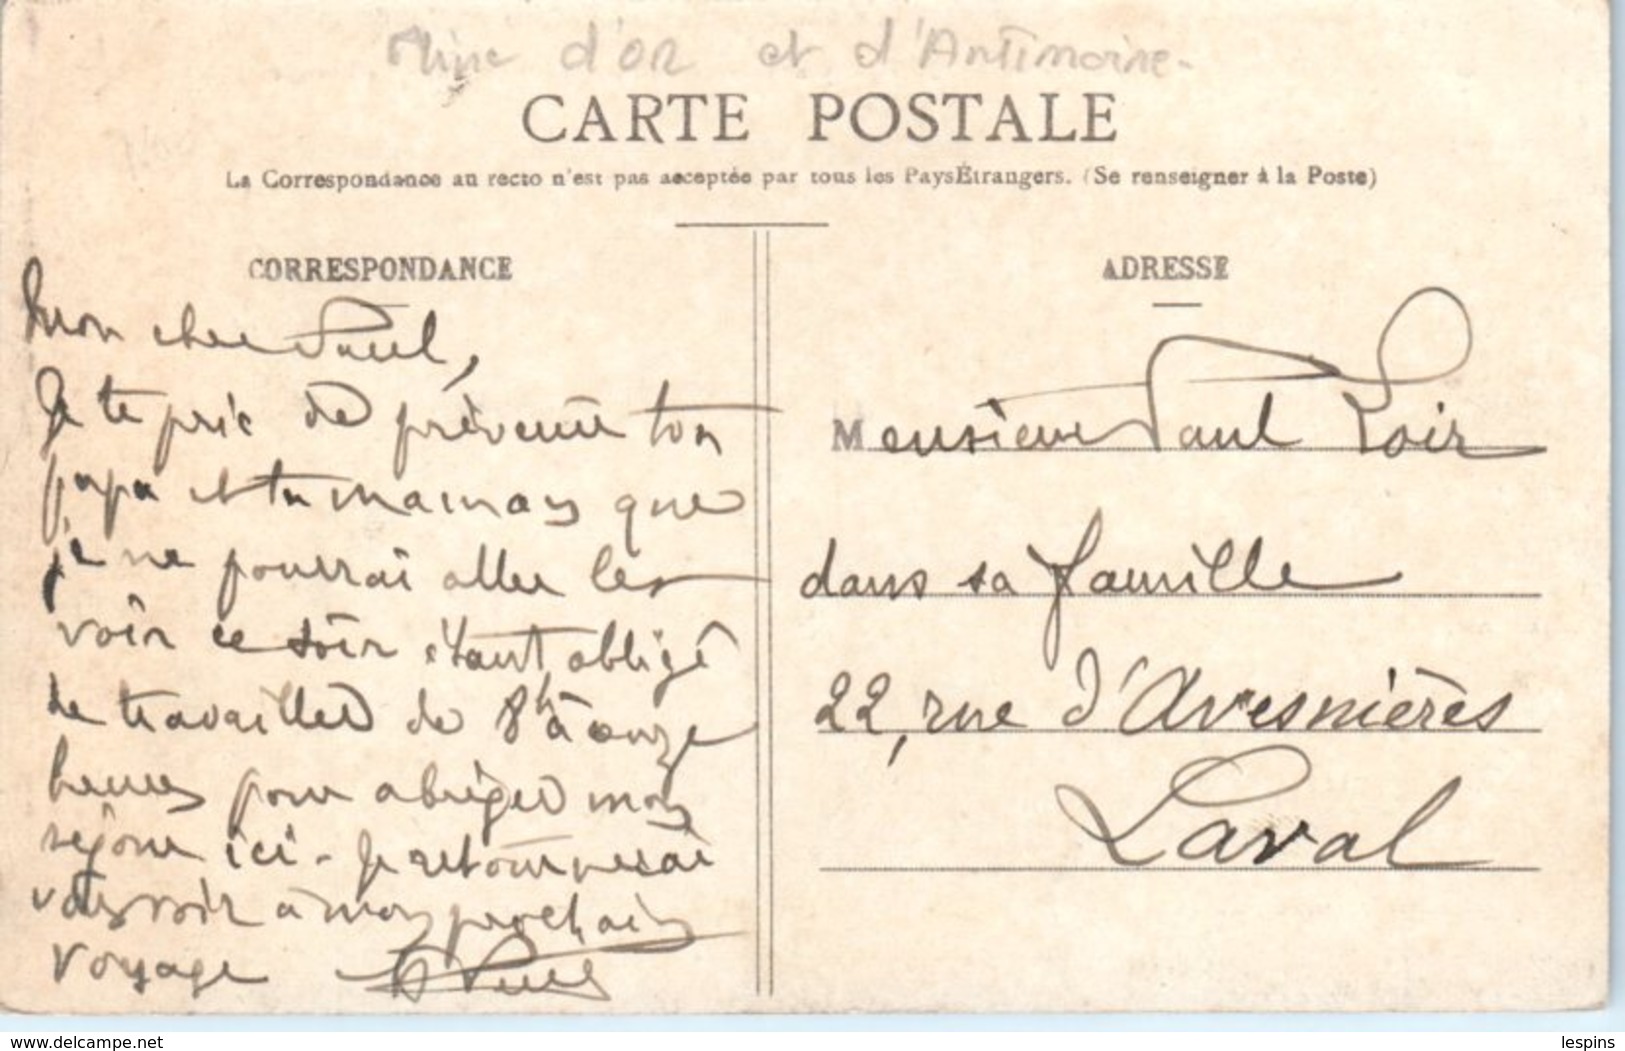 Mine d'or et d'Antimoine-
CARTE POSTALE
La Correspondance au recto n'est pas acceptée par tous les Pays Étrangers. (Se renseigner à la Poste)
CORRESPONDANCE
Mon cher Paul,
Je te prie de prévenir ton
papa et ta maman que
je ne pourrai aller les
voir ce soir étant obligé
de travailler de 8h à onze
heures pour abréger mon
séjour ici - Je retournerai
vous voir à mon prochain
voyage
ADRESSE
Monsieur Paul Loir
dans sa famille
22, rue d'Avesnières
Laval
www.delcampe.net
lespins